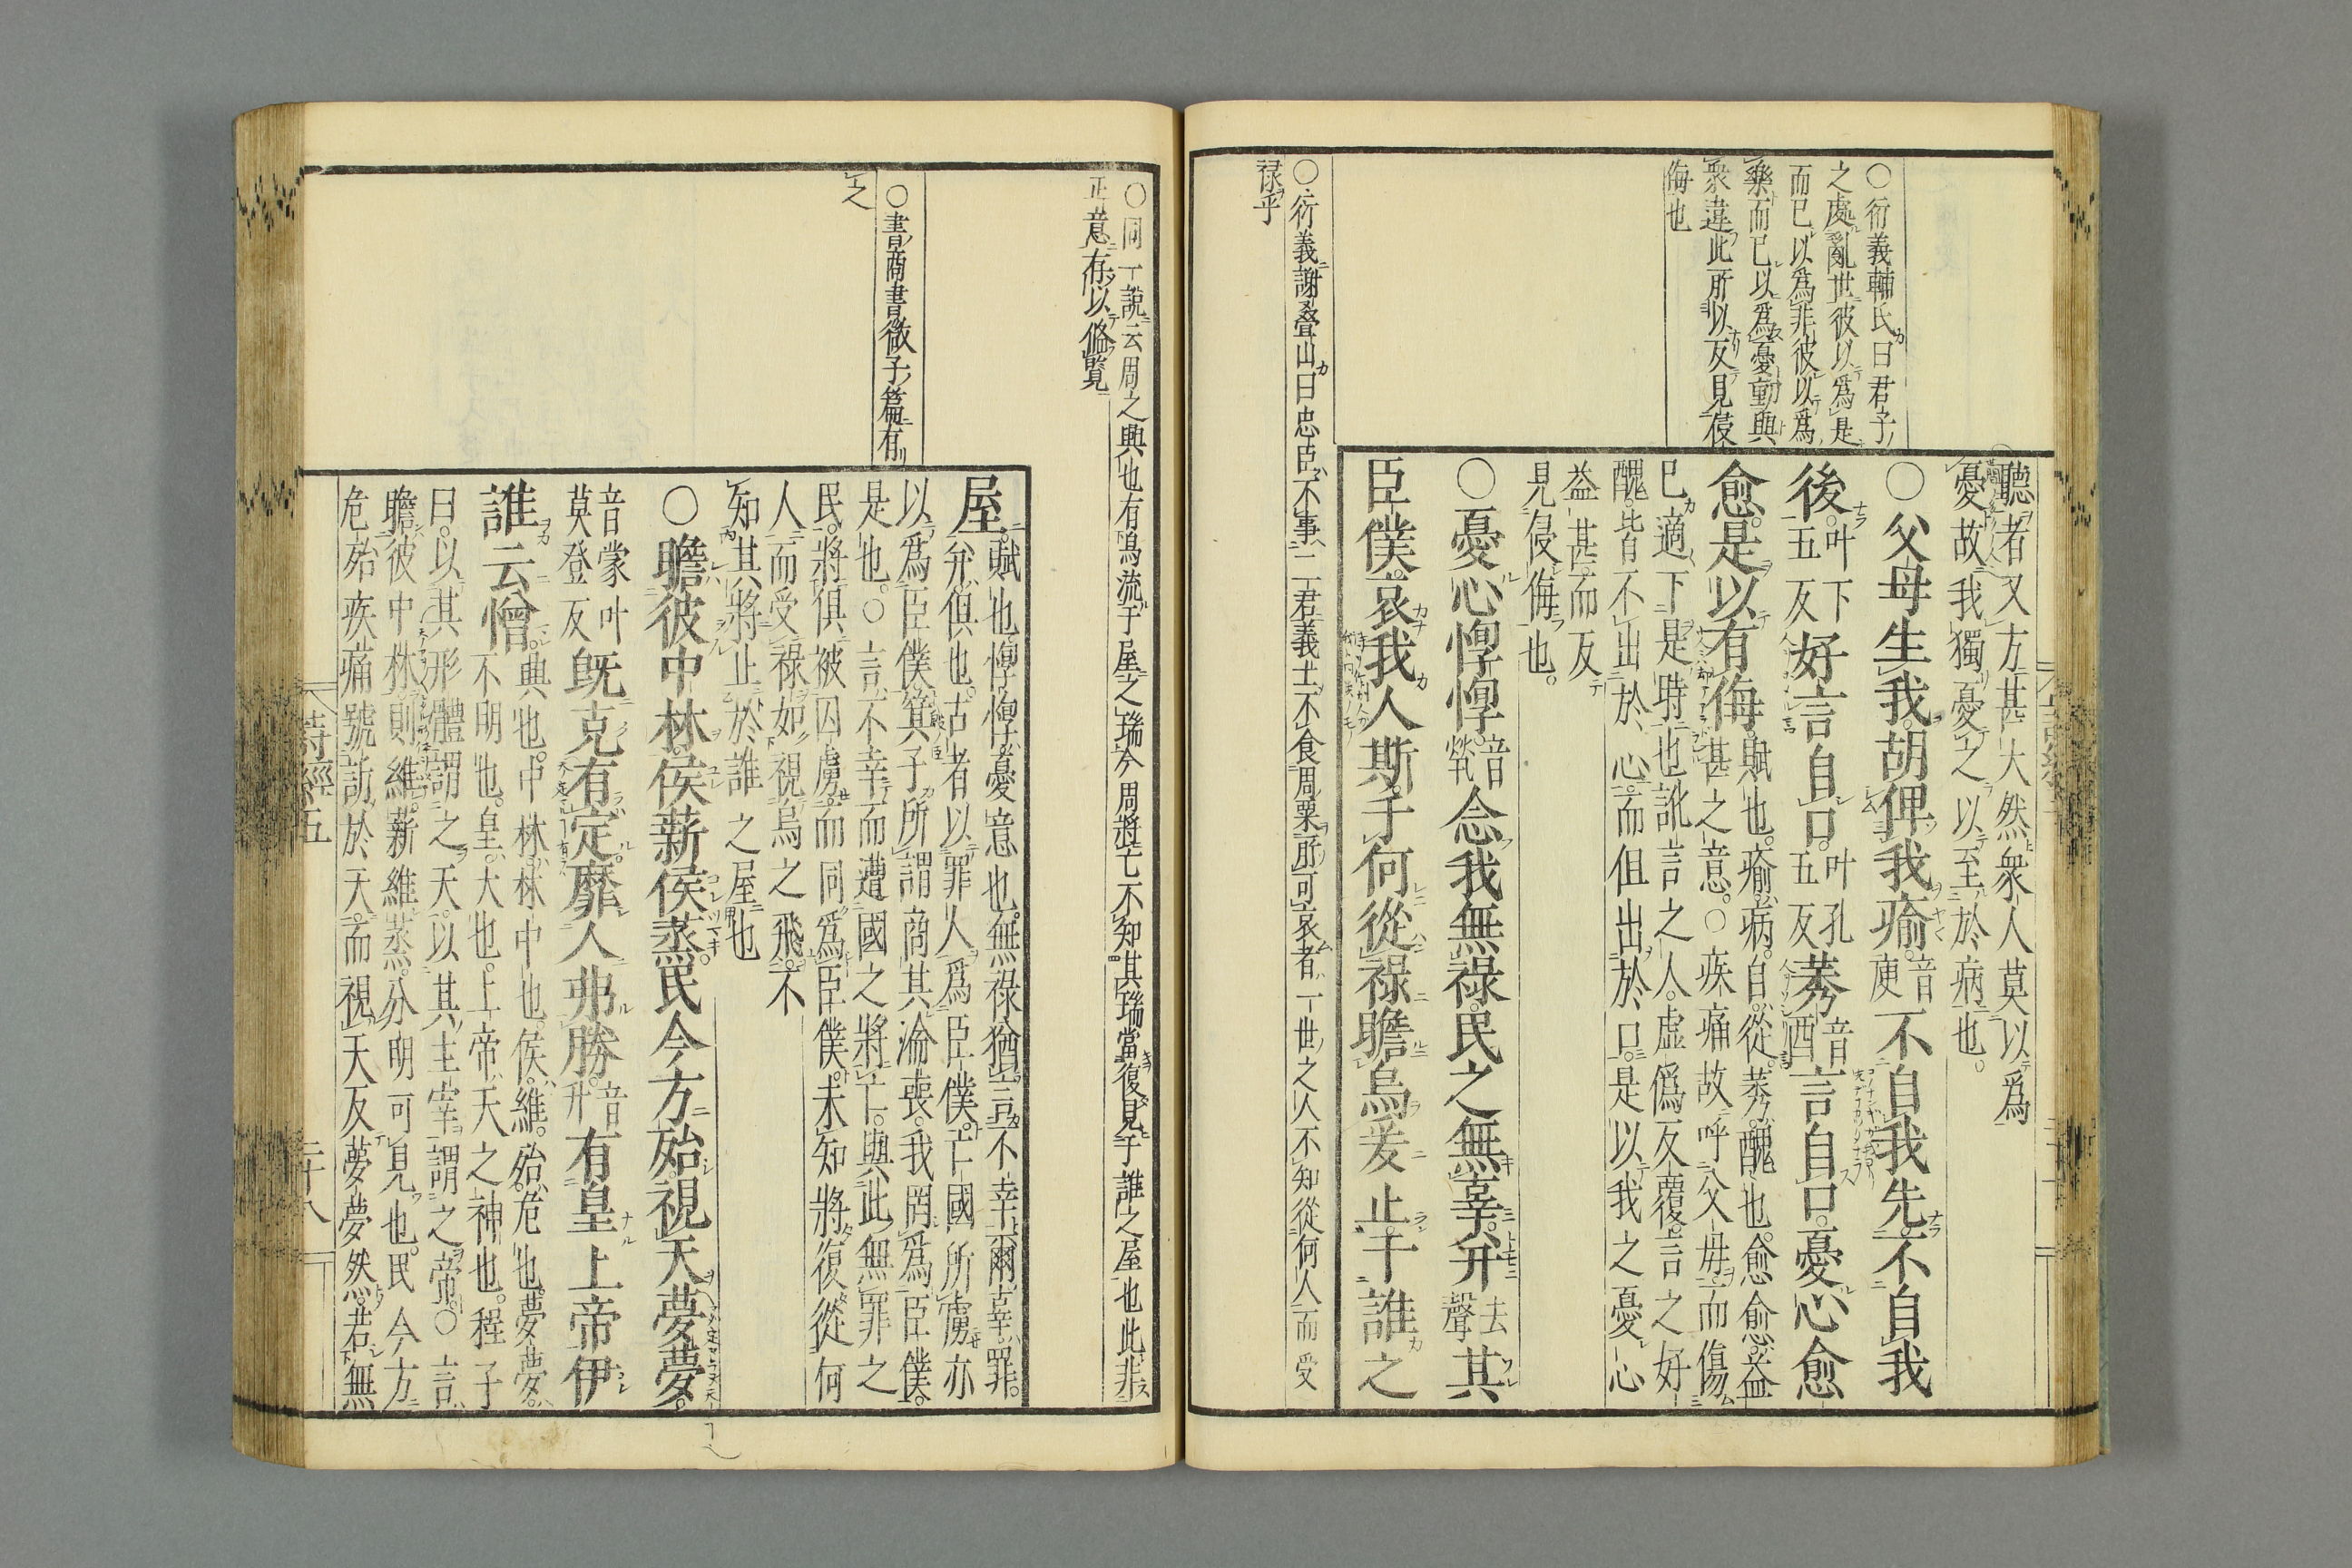 聽者又方甚大然衆人莫以爲
憂故我獨憂之以至於病也。
○父母生我。胡俾我瘉。音庾不自我先。不自我
後。叶下五反好言自口。叶孔五反莠音酉言自口。憂心愈
愈。是以有侮。賦也。瘉、病。自、從。莠、醜也。愈愈、益
甚之意。○疾痛故呼父母。而傷
已適下是時也訛言之人。虛僞反覆。言之好
醜。皆不出於心。而但出於口。是以我之憂心
益甚。而反
見侵侮也。
○憂心惸惸。音煢念我無祿。民之無辜。并去聲其
臣僕。哀我人斯。于何從祿瞻烏爰止。于誰之
○衍義輔氏曰君子
之處亂世彼以爲是
而已以爲非彼以爲
樂而已以爲憂動與
衆違此所以反見侵
侮也
○衍義謝疊山曰忠臣不事二君義士不食周粟所可哀者一世之人不知從何人而受
祿乎
○同一說云周之興也有烏流于屋之瑞今周將亡不知其瑞當復見于誰之屋也此非
正意存以俻覽
屋。賦也惸惸、憂意也。無祿猶言不幸爾辜、罪。
并、俱也。古者以罪人爲臣僕。亡國所虜亦
以爲臣僕箕子所謂商其淪喪。我罔爲臣僕。
是也。○言不幸而遭國之將亡。與此無罪之
民。將俱被囚虜而同爲臣僕。未知將復從何
人而受祿如視烏之飛。不
知其將止於誰之屋也
○瞻彼中林。侯薪侯蒸。民今方殆。視天夢夢。
音蒙叶莫登反既克有定。靡人弗勝。音升有皇上帝伊
誰云憎。興也。中林、林中也。侯、維。殆、危也。夢夢、
不明也。皇、大也。上帝、天之神也。程子
曰。以其形體謂之天。以其主宰謂之帝。○言
瞻彼中林則維薪維蒸。分明可見也。民今方
危殆疾痛號訴於天。而視天反夢夢然。若無
○書商書微子篇有
之
詩經五
二十八